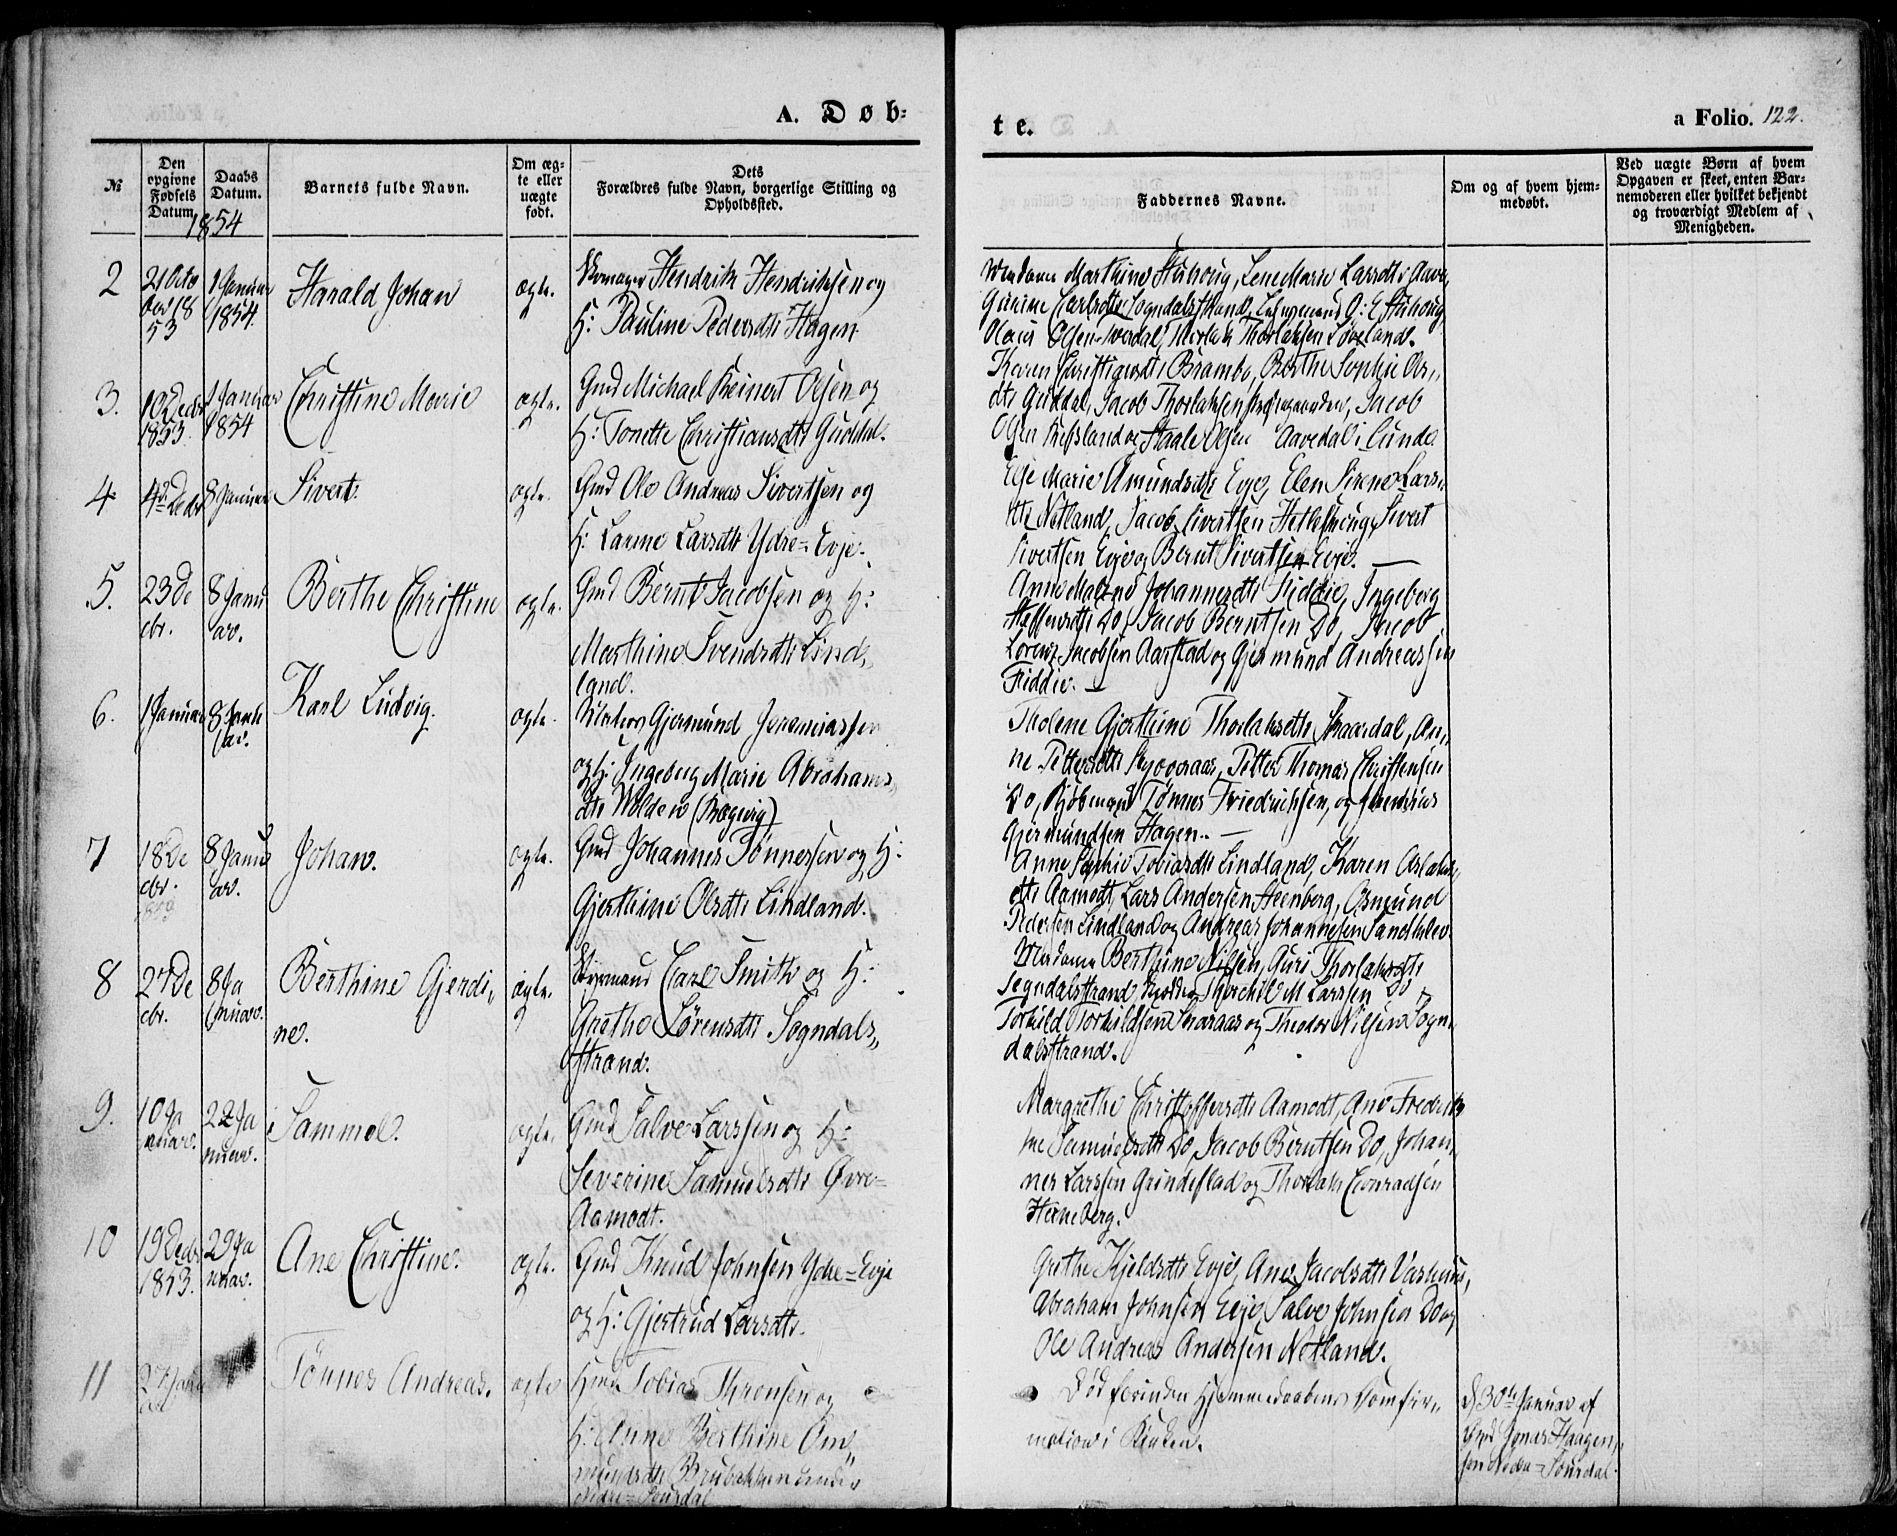 A. Døb-
te.
a Folio. 122.
№
Den opgivne Fødsels Datum.
Daabs Datum.
1854
Barnets fulde Navn.
Om ægte eller uægte født.
Dets Forældres fulde Navn, borgerlige Stilling og Opholdssted.
Faddernes Navne.
Om og af hvem hjemmedøbt.
Ved uægte Børn af hvem Opgaven er skeet, enten Barnemoderen eller hvilket bekjendt og troværdigt Medlem af Menigheden.
2
21 Octo
ber 18
53
1 Januar
1854.
Harald Johan
ægte.
Hendrik Hendriksen og
H: Pauline Pedersdtr Hagen
Madame Marthine Stuhoug, Lene Marie Larsdtr
Gunine Carlsdtr Sogndalsstrand, Lehnsmand O: E Stuhoug
Olaus Olsen Tverdal, Thorlak Thorlaksen Løveland.
3.
10 Decbr
1853
1 Januar
1854
Christine Marie
ægte.
Gmd Michael Reinert Olsen og
H: Tonette Christiansdtr Guddal.
Karen Christiansdtr Brambo, Berthe Sophie Ols,,
dtr Guddal, Jacob Thorlaksen, Jacob
Olsen Refsland og Staale Olsen Aavedal i Lunde
4
4de Decbr
8 Januar
Sivert
ægte.
Gmd Ole Andreas Sivertsen og
H: Laurine Larsdtr Ydre-Evje.
Marie Amundsdtr Evje, Elen Sirene Lars,,
dtr Netland, Jacob Sivertsen Hetleskoug, Sivert
Sivertsen Evje og Bernt Sivertsen Evje. —
5.
23 De
cbr.
8 Janu
ar.
Berthe Christine
ægte.
Gmd Bernt Jacobsen og H:
Marthine Svendsdtr Lind,,
land.
Anne Malene Johannesdtr Fiddie, Ingeborg
Steffensdtr Do, Jacob Berntsen Do, Jacob
Lorenz Jacobsen Aarstad og Gjermund Andreassen
Fiddie. —
6.
1 Januar
8 Janu
ar.
Karl Ludvig.
ægte.
Gjermund Jeremiassen
og H: Ingeborg Marie Abrahams,,
dtr Wolden (Rægevig)
Tholene Gjerthine Thorlaksdtr Skaardal, An,,
ne Pettersdtr, Petter Thomas Christensen
Do, Kjøbmand Tønnes Friedrichsen, og
Gjermundsen Hagen. —
7
18 De
cbr.
8 Janu
ar.
Johan.
ægte.
Gmd Johannes Tønnessen og H:
Gjerthine Olsdtr Lindland.
Anne Sophie Tobiasdtr Lindland, Karen Aslaks,,
dtr Aamodt, Lars Andersen Steenberg, Osmund
Pedersen Lindland og Andreas Johannesen Sandklev.
8
27 De
cbr.
8 Ja
nuar.
Berthine Gjerdi,,
ne.
ægte.
Styrmand Carl Smith og H:
Grethe Lørensdtr Sogndals,,
strand.
Madame Berthine Nilsen, Guri Thorlaksdtr
Sogndalsstrand, Thorchil M Larssen Do,
Torkild Torkildsen og Theodor Nilsen Sogn,,
dalsstrand.
9.
10 Ja
nuar.
22 Ja
nuar.
Sammel.
ægte.
Gmd Salve Larssen og H:
Severine Samuelsdtr Øvre-
Aamodt.
Margrethe Christoffersdtr Aamodt, Ane Fredrik,,
ke Samuelsdtr Do, Jacob Berntsen Do, Johan,,
nes Larssen Grindeflad og Thorlak Conradsen
Steneberg.
10
19 Decbr
1853.
29 Ja
nuar.
Ane Christine.
ægte.
Gmd Knud Johnsen Ydre-Evje
og H: Gjertrud Larsdtr.
Grethe Kjeldsdtr Evje, Ane Jacobsdtr Vashuus,
Abraham Johnsen Evje, Salve Johnsen Do og
Ole Andreas Andersen Netland.
11
27 Janu
ar
Tønnes Andreas.
ægte
Tobias Thronsen og
H: Anne Berthine Om,,
mundsdtr Brubakken under
Nedre-Sourdal
Død forinden Hjemmedaabens Comfir,,
mation i Kirken.
d. 30te Januar af
Gmd Jonas Haagen,,
sen Nedre-Sourdal.